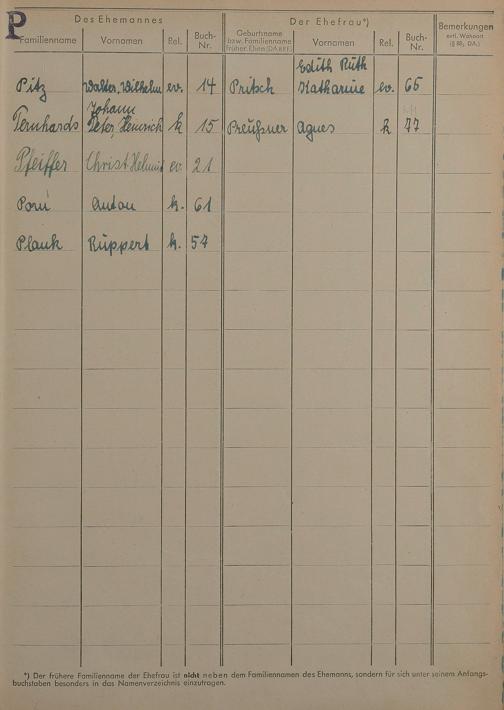 P
Des Ehemannes
Der Ehefrau*)
Bemerkungen
evtl. Wohnort
(§ 88, DA.)
Familienname
Vornamen
Rel.
Buch-
Nr.
Geburtsname
bzw. Familienname
früher. Ehen (DA §§ F.F.)
Vornamen
Rel.
Buch-
Nr.
Edith Ruth
Pitz Walter, Wilhelm ev. 14 Pritsch Katharine ev. 66
Johann
Peter, Heinrich k 15 Preußner Agnes k 77
Pfeiffer Christ Helmut ev. 21
Anton k. 61
Plank Ruppert k. 57
*) Der frühere Familienname der Ehefrau ist nicht neben dem Familiennamen des Ehemanns, sondern für sich unter seinem Anfangs-
buchstaben besonders in das Namenverzeichnis einzutragen.